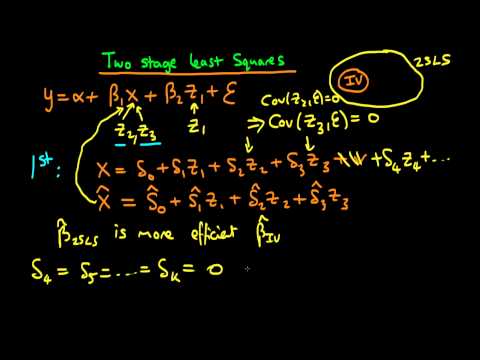 Two stage least Squares
2SLS
IV
y = α + β₁x + β₂z₁ + ε
Cov(z₂,ε)=0
z₂,z₃ z₁ ⇒ Cov(z₃,ε) = 0
1st: x = δ₀ + δ₁z₁ + δ₂z₂ + δ₃z₃ + δ₄z₄ + ...
x̂ = δ̂₀ + δ̂₁z₁ + δ̂₂z₂ + δ̂₃z₃
β̂2SLS is more efficient β̂IV
δ₄ = δ₅ = .... = δK = 0